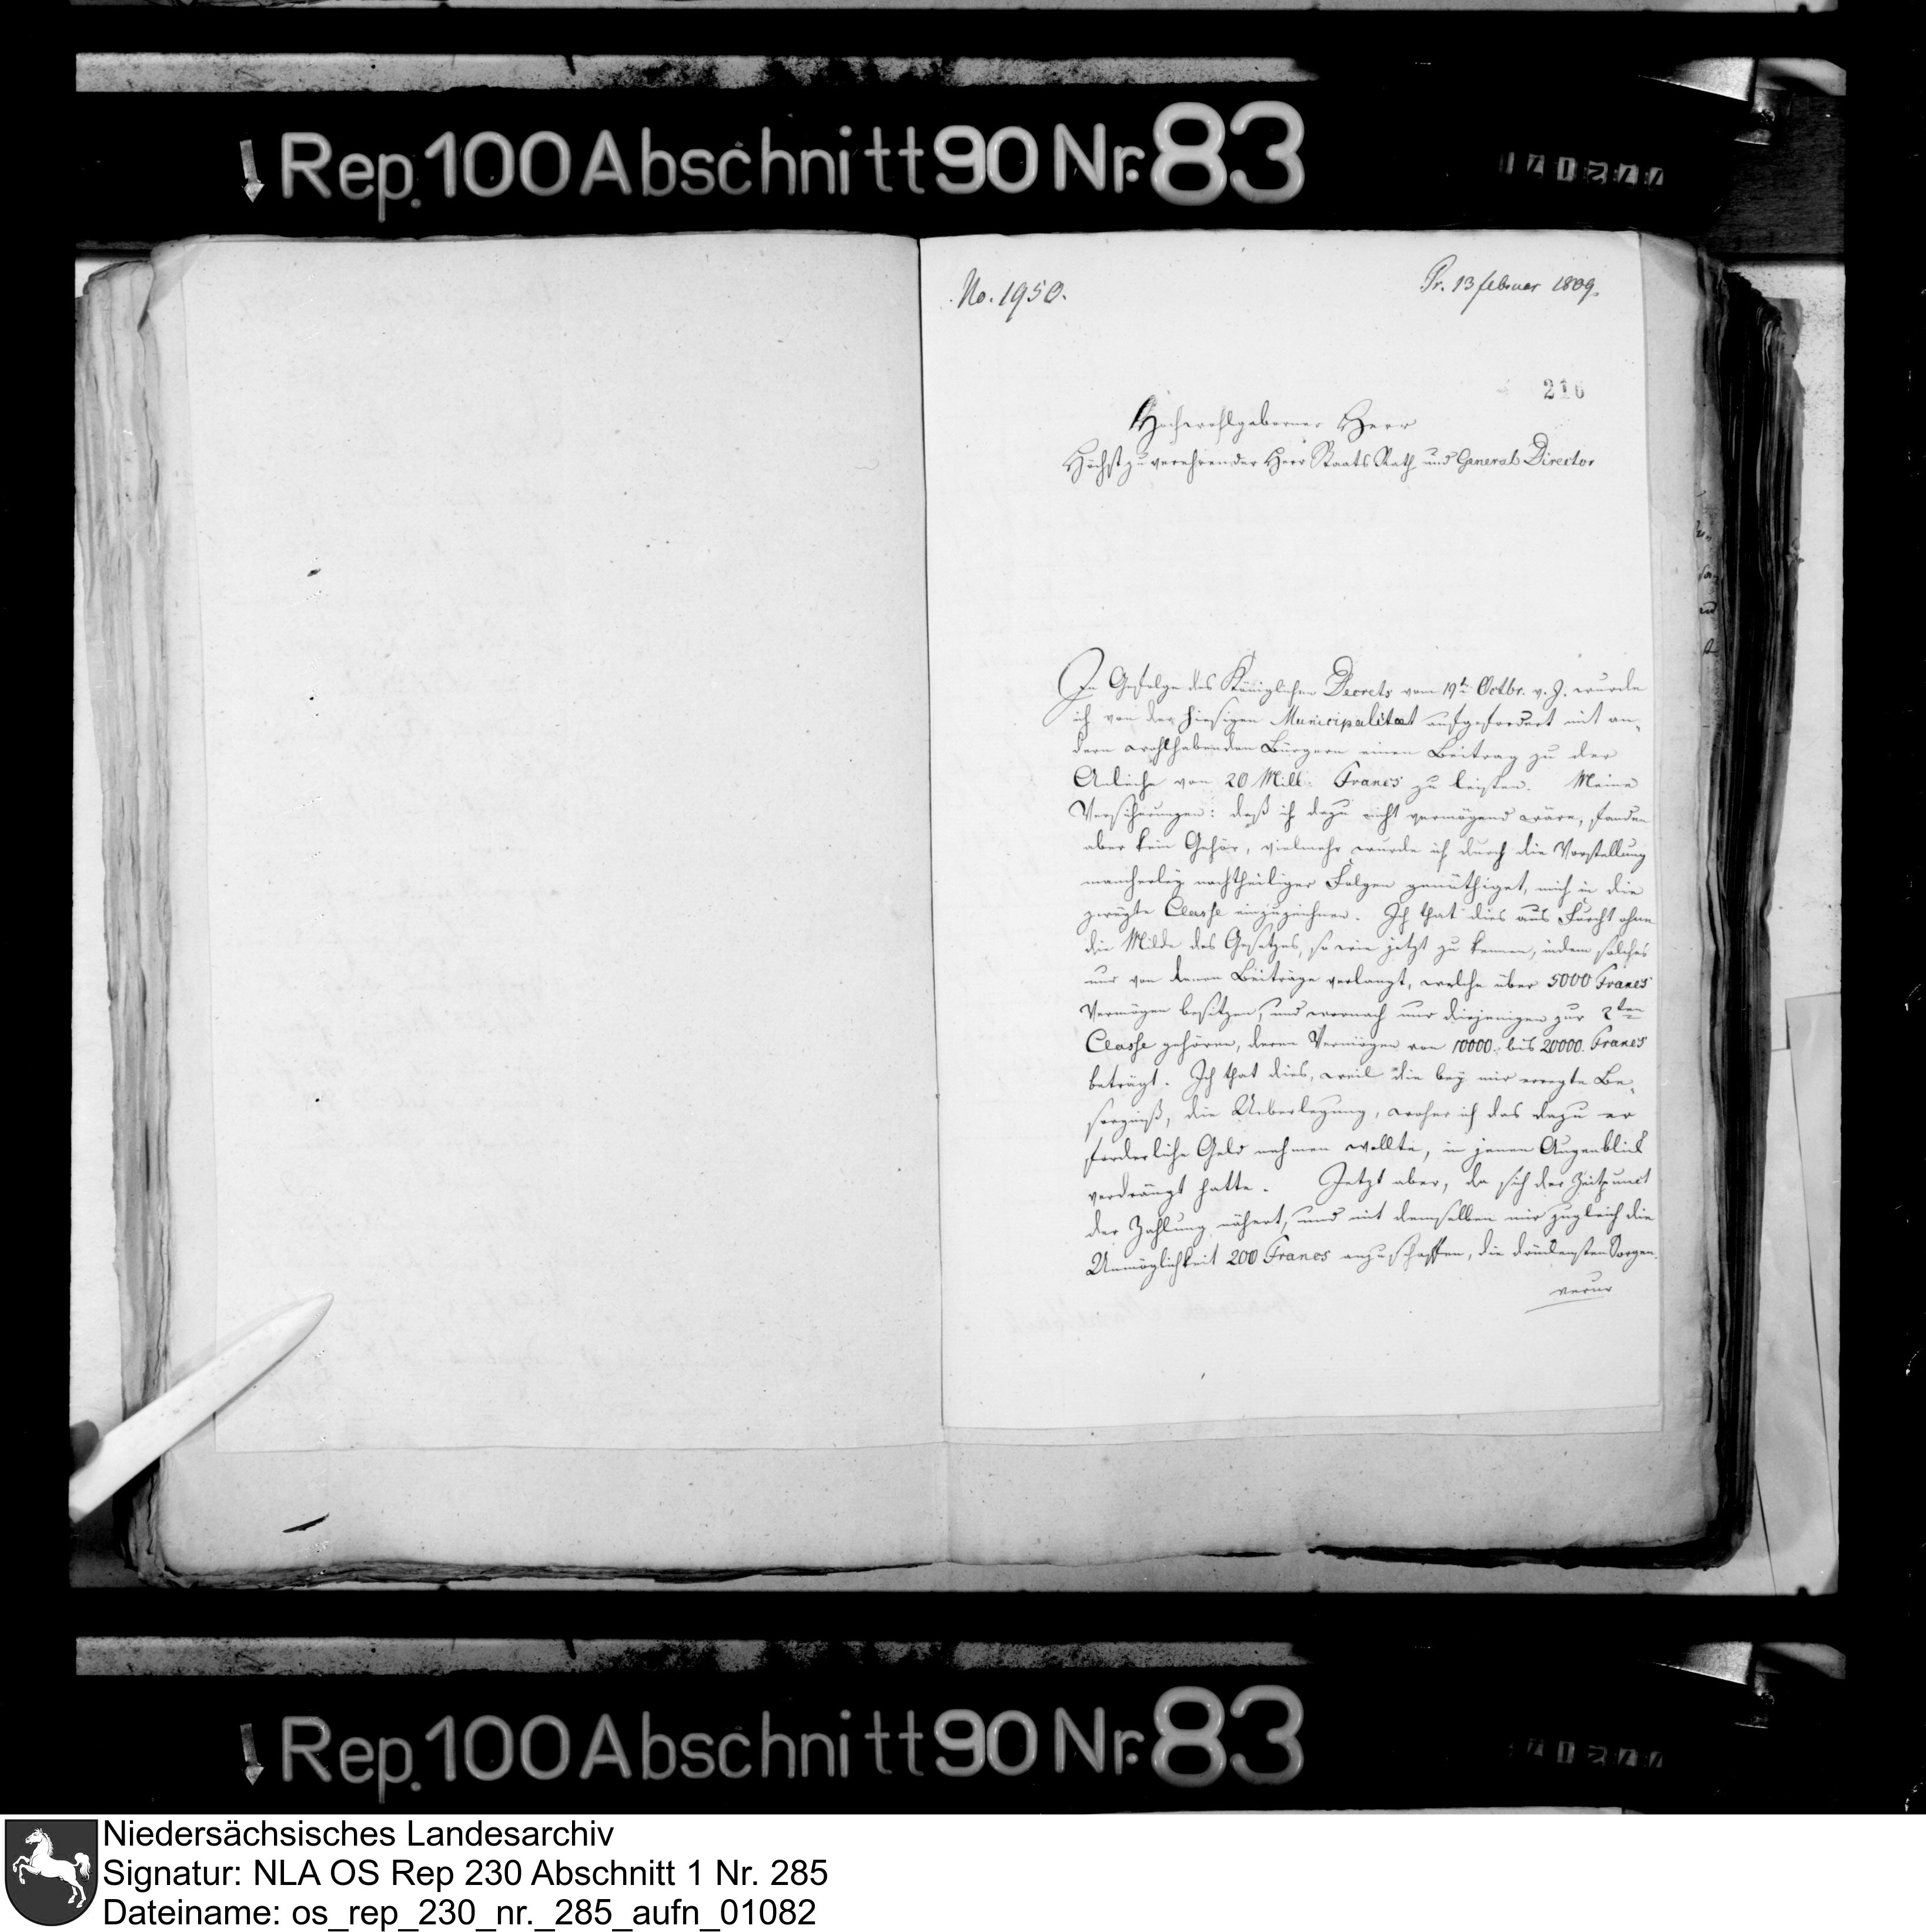 Rep. 100 Abschnitt 90 Nr. 83
No. 1950.
Pr. 13 februar 1809.
216
Hochwohlgeborner Herr
Höchstzuverehrender Herr Staats Rath und General Director
In Gefolge des Königlichen Decrets vom 19t Octbr. v. J. wurde
ich von der hiesigen Municipalitaet aufgefordert mit an-
dern wohlhabenden Bürgern einen Beitrag zu der
Anleihe von 20 Mill. Francs zu leisten. Meine
Versicherungen: daß ich dazu nicht vermögend wäre, fanden
aber kein Gehör, vielmehr wurde ich durch die Vorstellung
mancherley nachtheiliger Folgen genöthiget, mich in die
zweyte Classe einzuzeichnen. Ich that dies aus Furcht ohne
die Milde des Gesetzes, so wie jetzt zu kennen, indem solches
nur von denen Beiträge verlangt, welche über 5000 Francs
Vermögen besitzen, und wornach nur diejenigen zur 2ten
Classe gehören, deren Vermögen von 10000. bis 20000. Francs
beträgt. Ich that dies, weil die bey mir erregte Be-
sorgniß, die Ueberlegung, woher ich das dazu er
forderliche Geld nehmen wollte, in jenen Augenblick
verdrängt hatte. Jetzt aber, da sich der Zeitpunct
der Zahlung nähert, und mit demselben mir zugleich die
Unmöglichkeit 200 Francs anzuschaffen, die drückensten Sorgen
verur
Rep. 100 Abschnitt 90 Nr. 83
Niedersächsisches Landesarchiv
Signatur: NLA OS Rep 230 Abschnitt 1 Nr. 285
Dateiname: os_rep_230_nr._285_aufn_01082